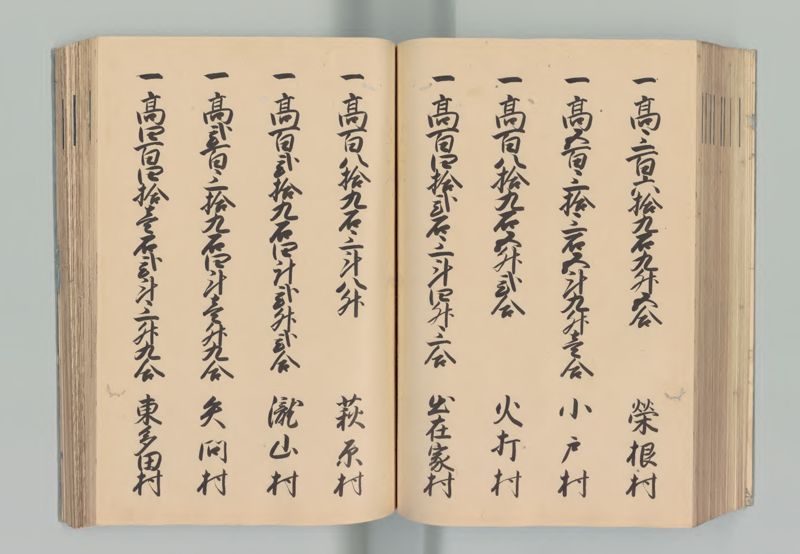 一高三百六拾九石九升五合 榮根村
一高五百三拾三石五斗九升壱合 小戸村
一高百八拾九石五升弐合 火打村
一高百四拾弐石三斗四升三合 出在家村
一高百八拾九石三斗八升 萩原村
一高百弐拾九石四斗弐升弐合 瀧山村
一高弐百三拾九石四斗壱升九合 矢問村
一高四百四拾壱石弐斗三升九合 東多田村